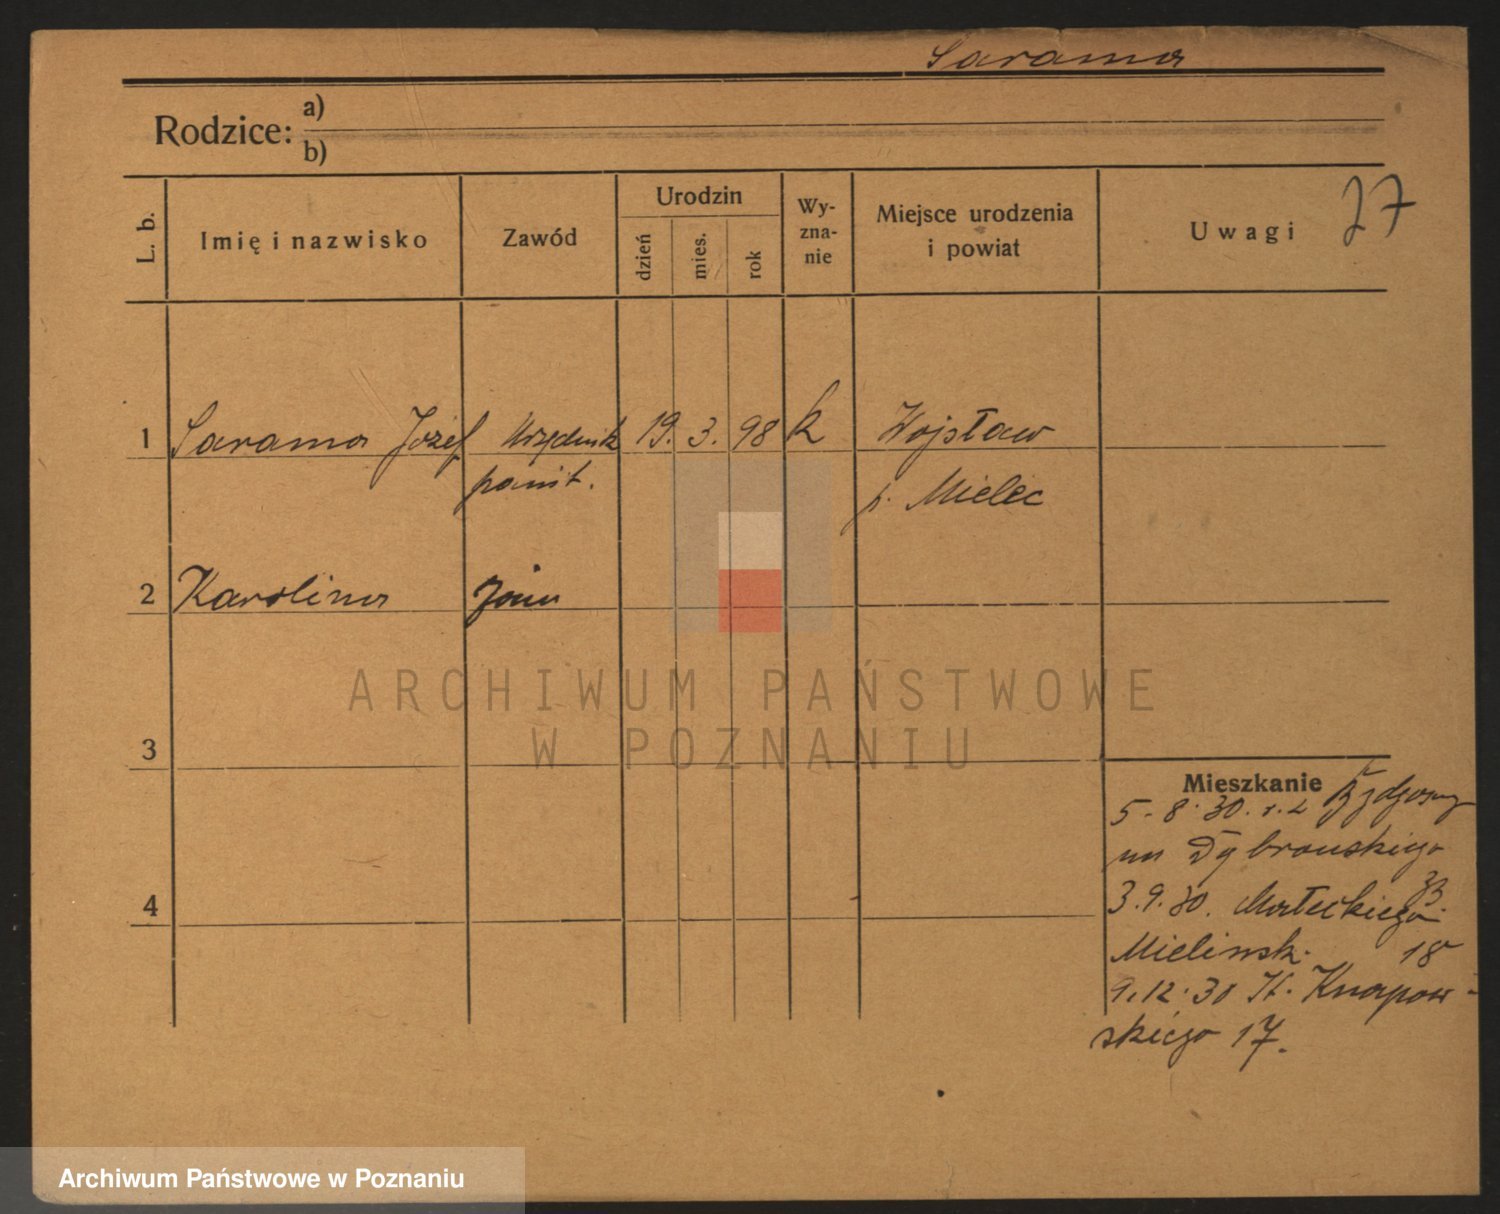 Sarama
Rodzice: a)
b)
L. b. Imię i nazwisko Zawód Urodzin dzień mies. rok Wy-zna-nie Miejsce urodzenia i powiat Uwagi 27
1 Sarama Józef Urzędnik 19. 3. 98 k Wojsław
państ. p. Mielec
2 Karolina żona
3
4
Mieszkanie
5. 8. 30. Bydgoszcz
Dąbrowskiego
33.
3. 9. 30. Małeckiego
18
9. 12. 30 Knapow-
skiego 17.
ARCHIWUM PAŃSTWOWE
W POZNANIU
Archiwum Państwowe w Poznaniu